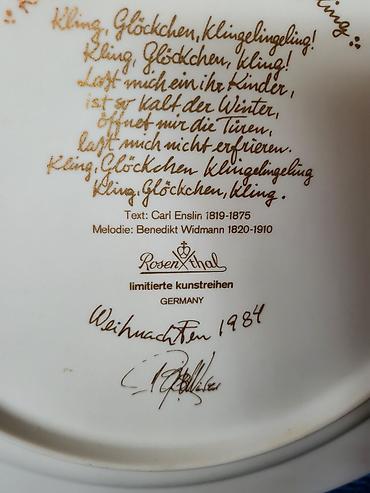 Kling, Glöckchen, Klingelingeling!
Kling, Glöckchen, Kling!
Laßt mich ein ihr Kinder,
ist so kalt der Winter,
öffnet mir die Türen,
laßt mich nicht erfrieren.
Kling, Glöckchen Klingelingeling
Kling, Glöckchen, Kling.
Text: Carl Enslin 1819-1875
Melodie: Benedikt Widmann 1820-1910
Rosenthal
limitierte kunstreihen
GERMANY
Weihnachten 1984